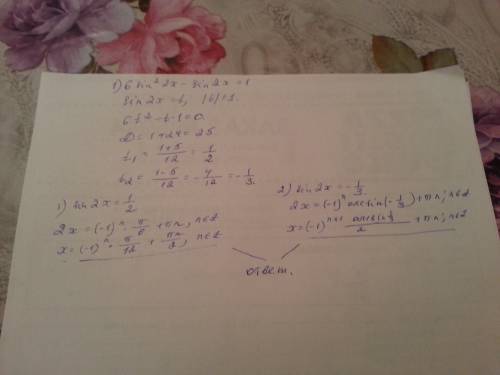 1) 6 sin² 2x - sin 2x = 1
sin 2x = t, |t| ≤ 1.
6t² - t - 1 = 0.
D = 1 + 24 = 25
t₁ = (1+5)/12 = 1/2
t₂ = (1-5)/12 = -4/12 = -1/3.
1) sin 2x = 1/2
2x = (-1)ⁿ · π/6 + πn, n∈Z
x = (-1)ⁿ · π/12 + πn/2, n∈Z
2) sin 2x = -1/3
2x = (-1)ⁿ arcsin(-1/3) + πn; n∈Z
x = (-1)ⁿ⁺¹ (arcsin 1/3)/2 + πn; n∈Z
ответ.